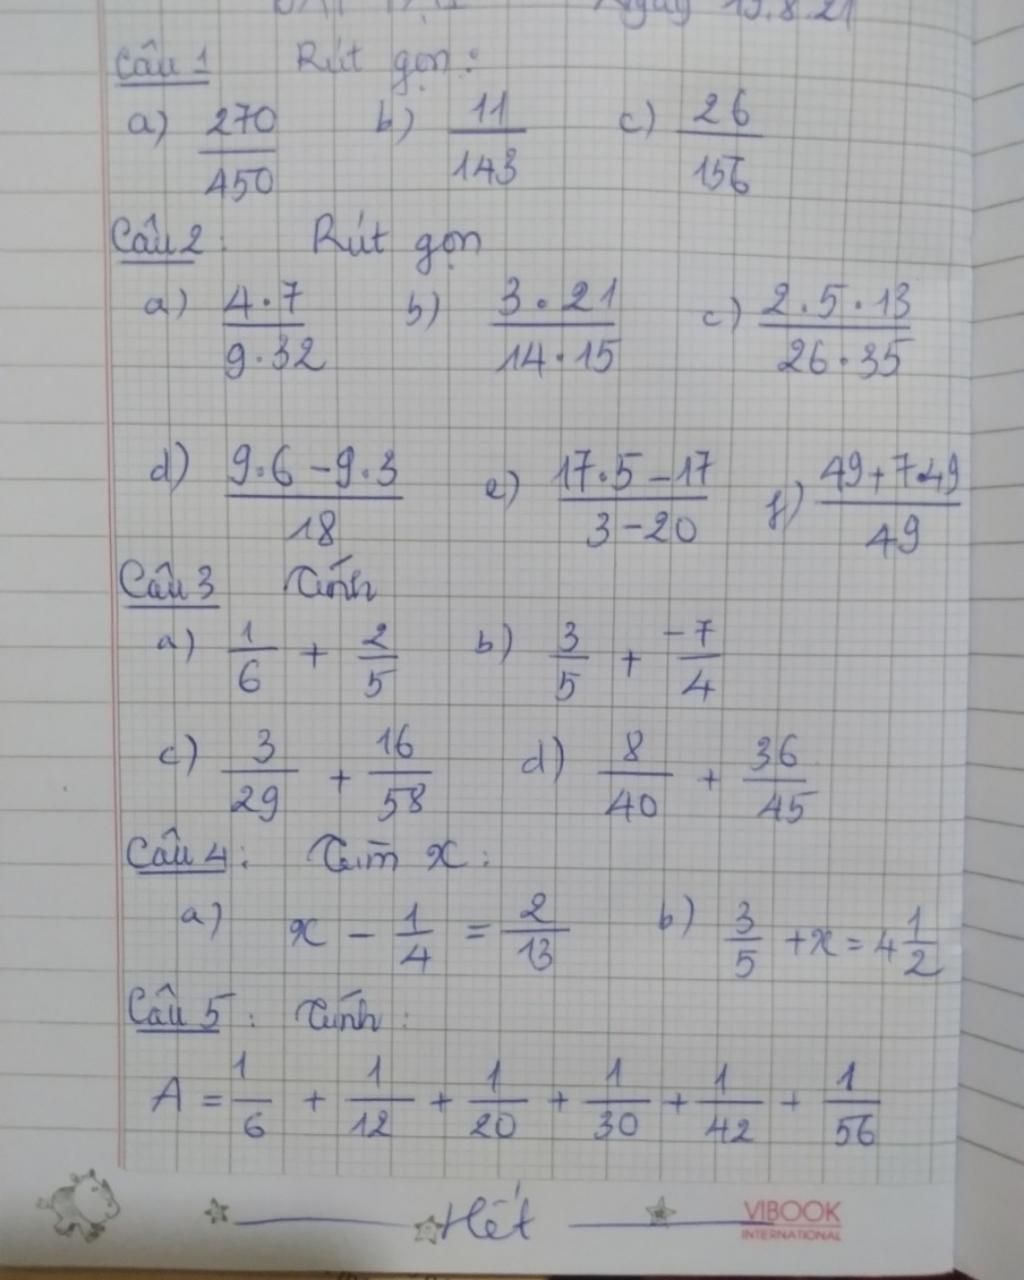 Ngày 19.8.21
Câu 1 Rút gọn:
a) 270/450 b) 11/143 c) 26/156
Câu 2: Rút gọn
a) 4.7/9.32 b) 3.21/14.15 c) 2.5.13/26.35
d) 9.6-9.3/18 e) 17.5-17/3-20 f) 49+7.49/49
Câu 3 Tính
a) 1/6 + 2/5 b) 3/5 + -7/4
c) 3/29 + 16/58 d) 8/40 + 36/45
Câu 4: Tìm x:
a) x - 1/4 = 2/13 b) 3/5 + x = 4 1/2
Câu 5: Tính:
A = 1/6 + 1/12 + 1/20 + 1/30 + 1/42 + 1/56
Hết
VIBOOK
INTERNATIONAL